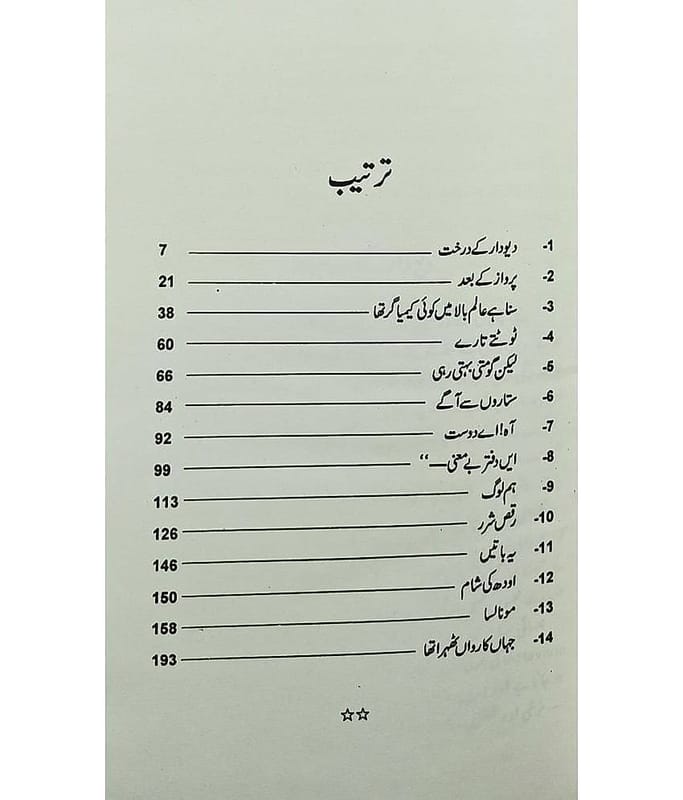 ترتیب
1- دیودار کے درخت 7
2- پرواز کے بعد 21
3- سنا ہے عالم بالا میں کوئی کیمیا گر تھا 38
4- ٹوٹتے تارے 60
5- لیکن گومتی بہتی رہی 66
6- ستاروں سے آگے 84
7- آہ! اے دوست 92
8- ایں دفتر بے معنی—“ 99
9- ہم لوگ 113
10- رقص شرر 126
11- یہ باتیں 146
12- اودھ کی شام 150
13- مونالسا 158
14- جہاں کارواں ٹھہرا تھا 193
☆☆